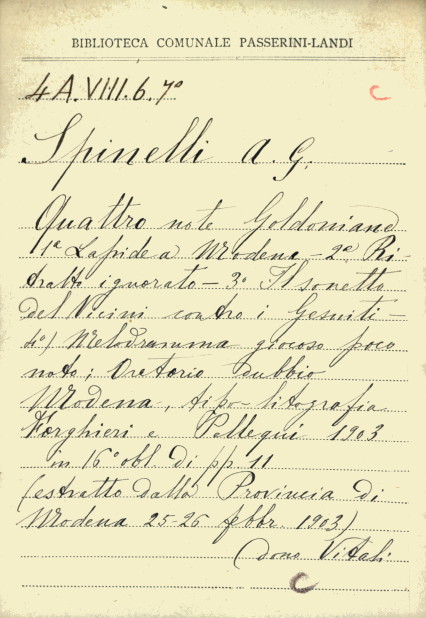 BIBLIOTECA COMUNALE PASSERINI-LANDI
4A.VIII.6.7º
C
Spinelli A. G.
Quattro note Goldoniane
1ª Lapide a Modena - 2ª Ri-
tratto ignorato - 3º Il sonetto
del Vicini contro i Gesuiti -
4º) Melodramma giocoso poco
noto; Oratorio dubbio
Modena, tipo-litografia
Forghieri e Pellequi 1903
in 16º obl di pp 11
(estratto dalla Provincia di
Modena 25-26 febbr. 1903)
(dono Vitali
C